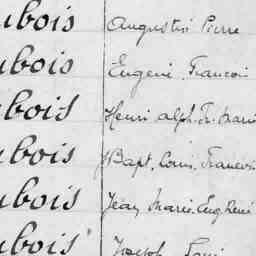 ubois Augustin Pierre
ubois Eugène Francois
ubois Henri alph. Fr. Marie
ubois JBapt. Louis. Francois
ubois Jean Marie. Eug. René
ubois Joseph Louis